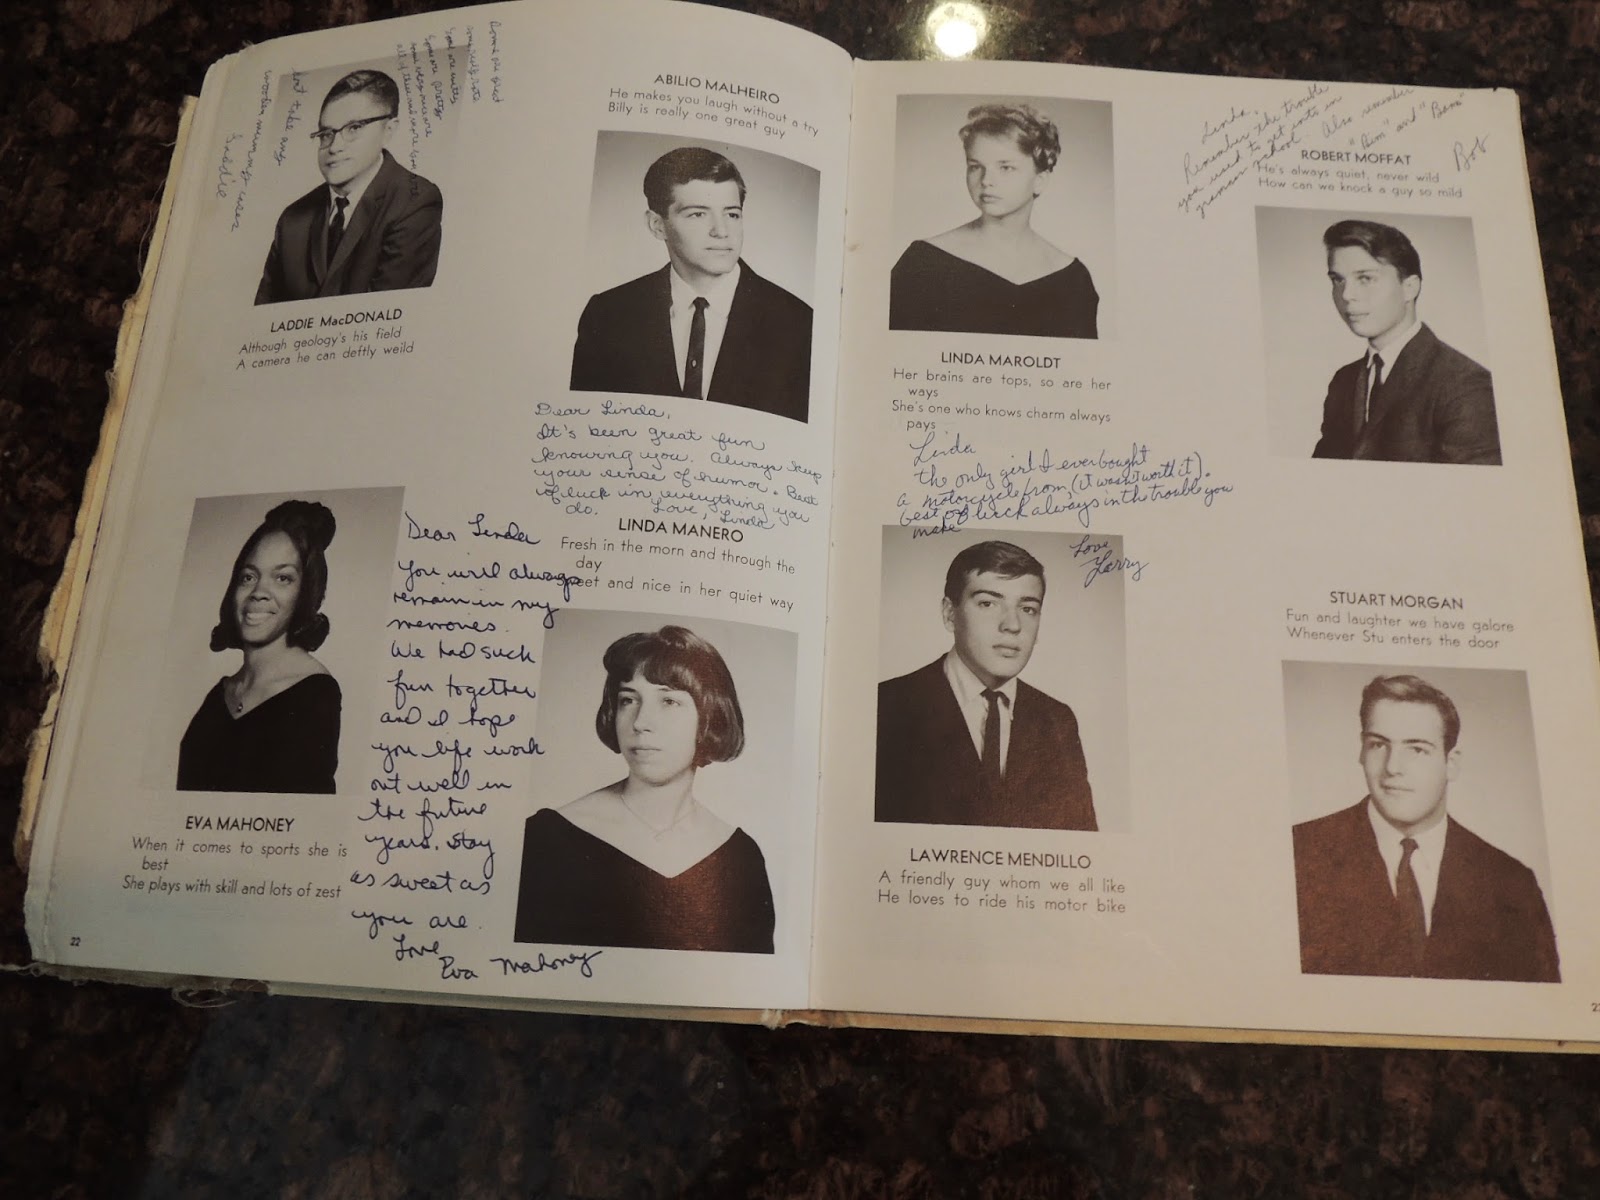 Some are cute
Some are pretty
wooden nummy uses
Laddie
LADDIE MacDONALD
Although geology's his field
A camera he can deftly weild
ABILIO MALHEIRO
He makes you laugh without a try
Billy is really one great guy
Dear Linda,
It's been great fun
knowing you. Always keep
your sense of humor. Best
of luck in everything you
do. Love, Linda
LINDA MANERO
Fresh in the morn and through the
day
Sweet and nice in her quiet way
EVA MAHONEY
When it comes to sports she is
best
She plays with skill and lots of zest
Dear Linda
You will always
remain in my
memories.
We had such
fun together
and I hope
you life work
out well in
the future
years. Stay
as sweet as
you are.
Love
Eva Mahoney
22
LINDA MAROLDT
Her brains are tops, so are her
ways
She's one who knows charm always
pays
Linda
the only girl I ever bought
a motorcycle from (it wasn't worth it).
best of luck always in the trouble you
make
Love
Larry
LAWRENCE MENDILLO
A friendly guy whom we all like
He loves to ride his motor bike
Linda,
Remember the trouble
you used to get into in
grammar school. Also remember
"Bim" and "Bama"
Bob
ROBERT MOFFAT
He's always quiet, never wild
How can we knock a guy so mild
STUART MORGAN
Fun and laughter we have galore
Whenever Stu enters the door